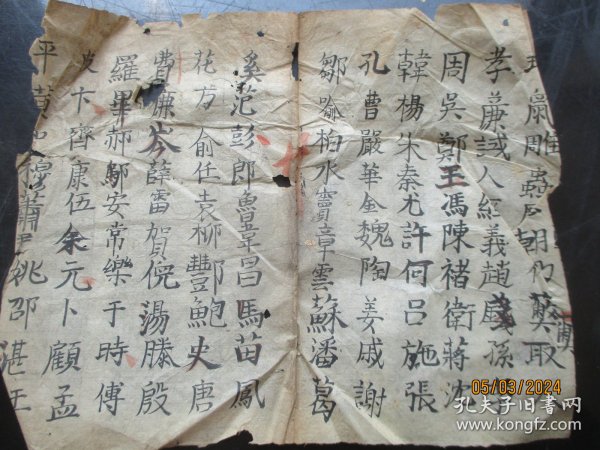 鼠雕
孝廉誠人紅義趙孫
周吳鄭王馮陳褚衛蔣沈
韓楊朱秦尤許何呂施張
孔曹嚴華金魏陶姜戚謝
鄒喻柏水竇章雲蘇潘葛
奚范彭郎魯韋昌馬苗鳳
花方俞任袁柳酆鮑史唐
費廉岑薛雷賀倪湯滕殷
羅畢郝鄔安常樂于時傅
皮卞齊康伍余元卜顧孟
平黃穆蕭姚邵湛王
05/03/2024
孔夫子旧书网
www.kongfz.com